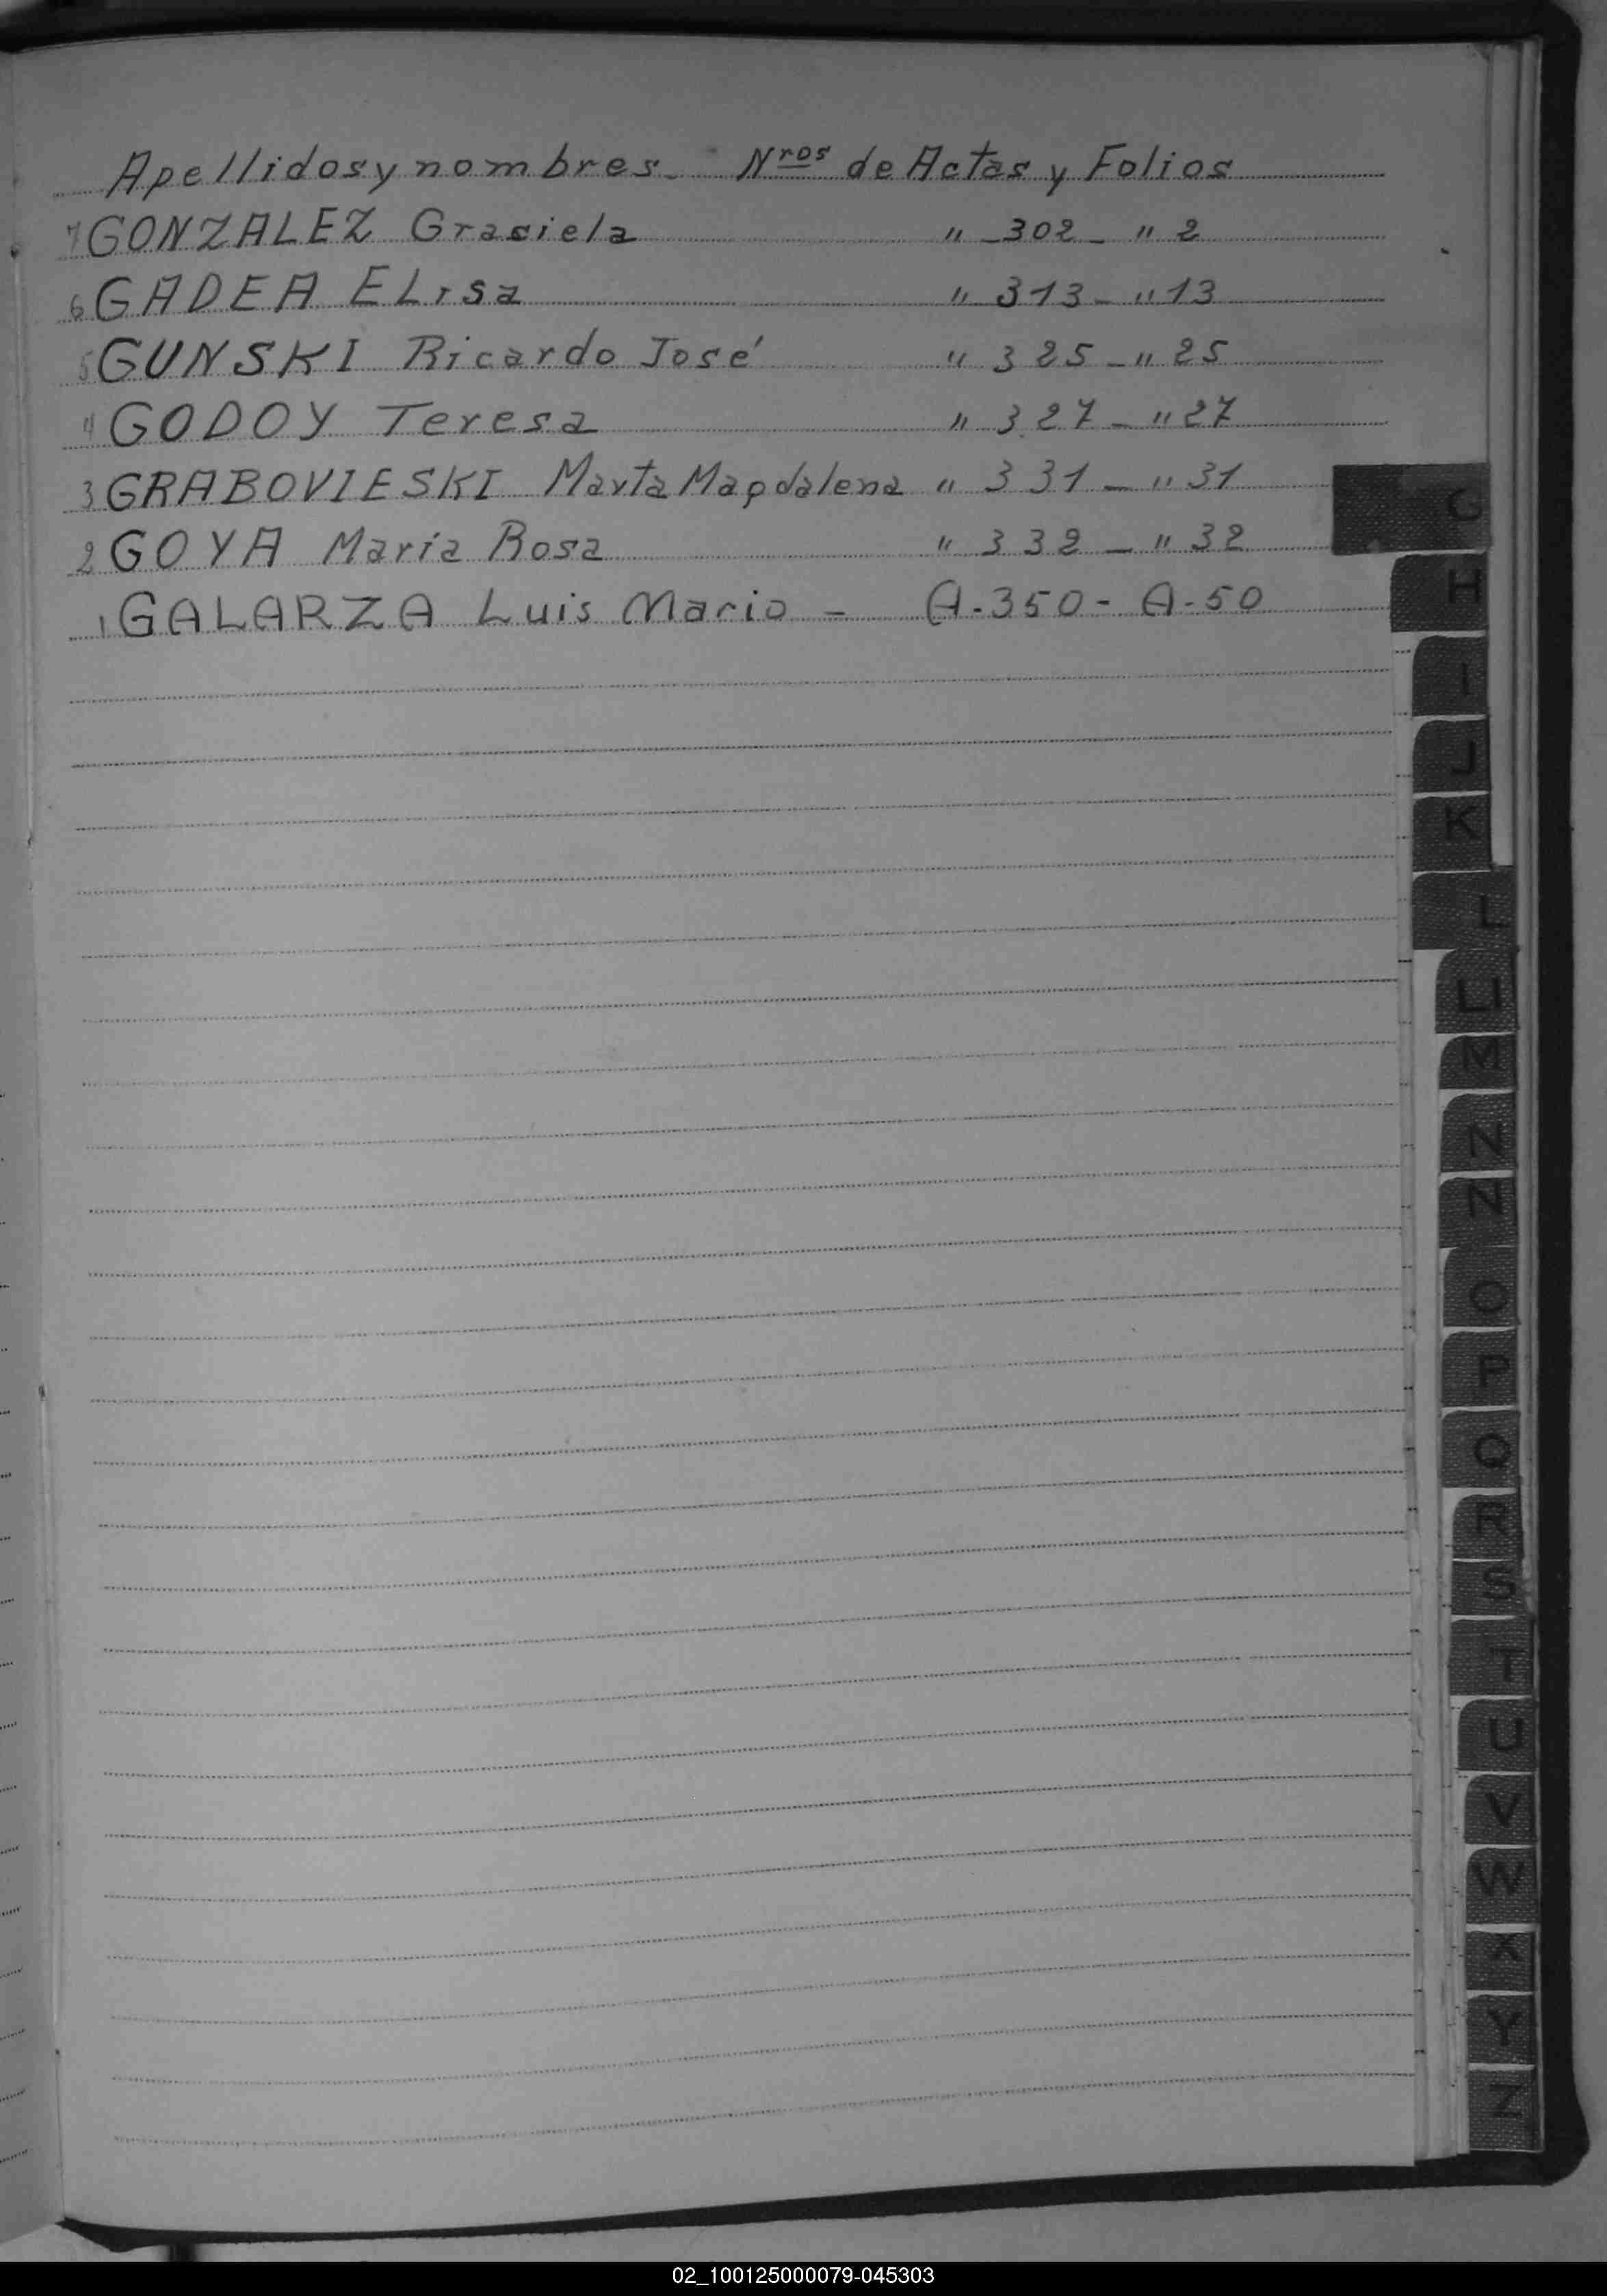 Apellidos y nombres. Nros de Actas y Folios
7 GONZALEZ Graciela " 302 - " 2
6 GADEA ELisa " 313 - " 13
5 GUNSKI Ricardo José " 325 - " 25
4 GODOY Teresa " 327 - " 27
3 GRABOVIESKI Marta Magdalena " 331 - " 31
2 GOYA Maria Rosa " 332 - " 32
1 GALARZA Luis Mario - A-350 - A-50
G
H
I
J
K
L
LL
M
N
Ñ
O
P
Q
R
S
T
U
V
W
X
Y
Z
02_100125000079-045303